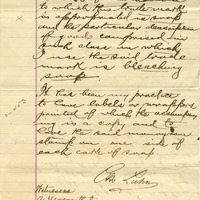 to which this trade mark
is appropriated is soap
and the particular description
of goods comprised in
such class in which
I use the said trade
mark is bleaching
soap.
It has been my practice
to have labels or wrappers
printed of which the accompany-
ing is a copy and to
have the said monogram
stamp on one side of
each cake of soap
Witnesses